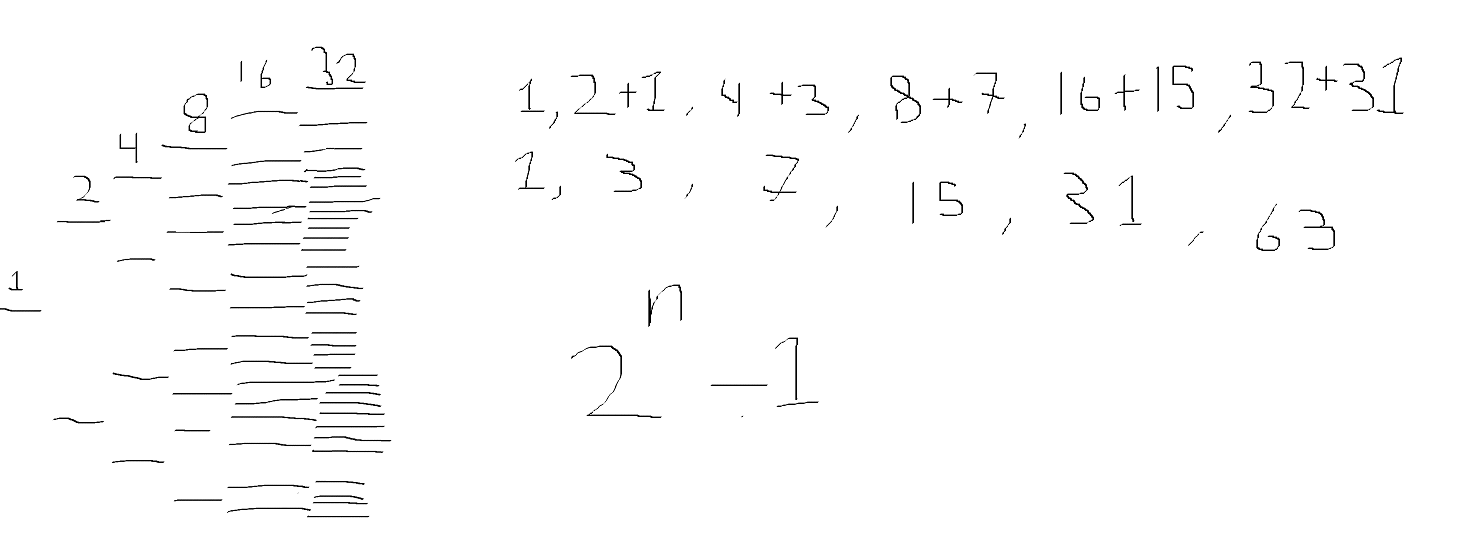 1 2 4 8 16 32
1, 2+1, 4+3, 8+7, 16+15, 32+31
1, 3, 7, 15, 31, 63
2^n - 1